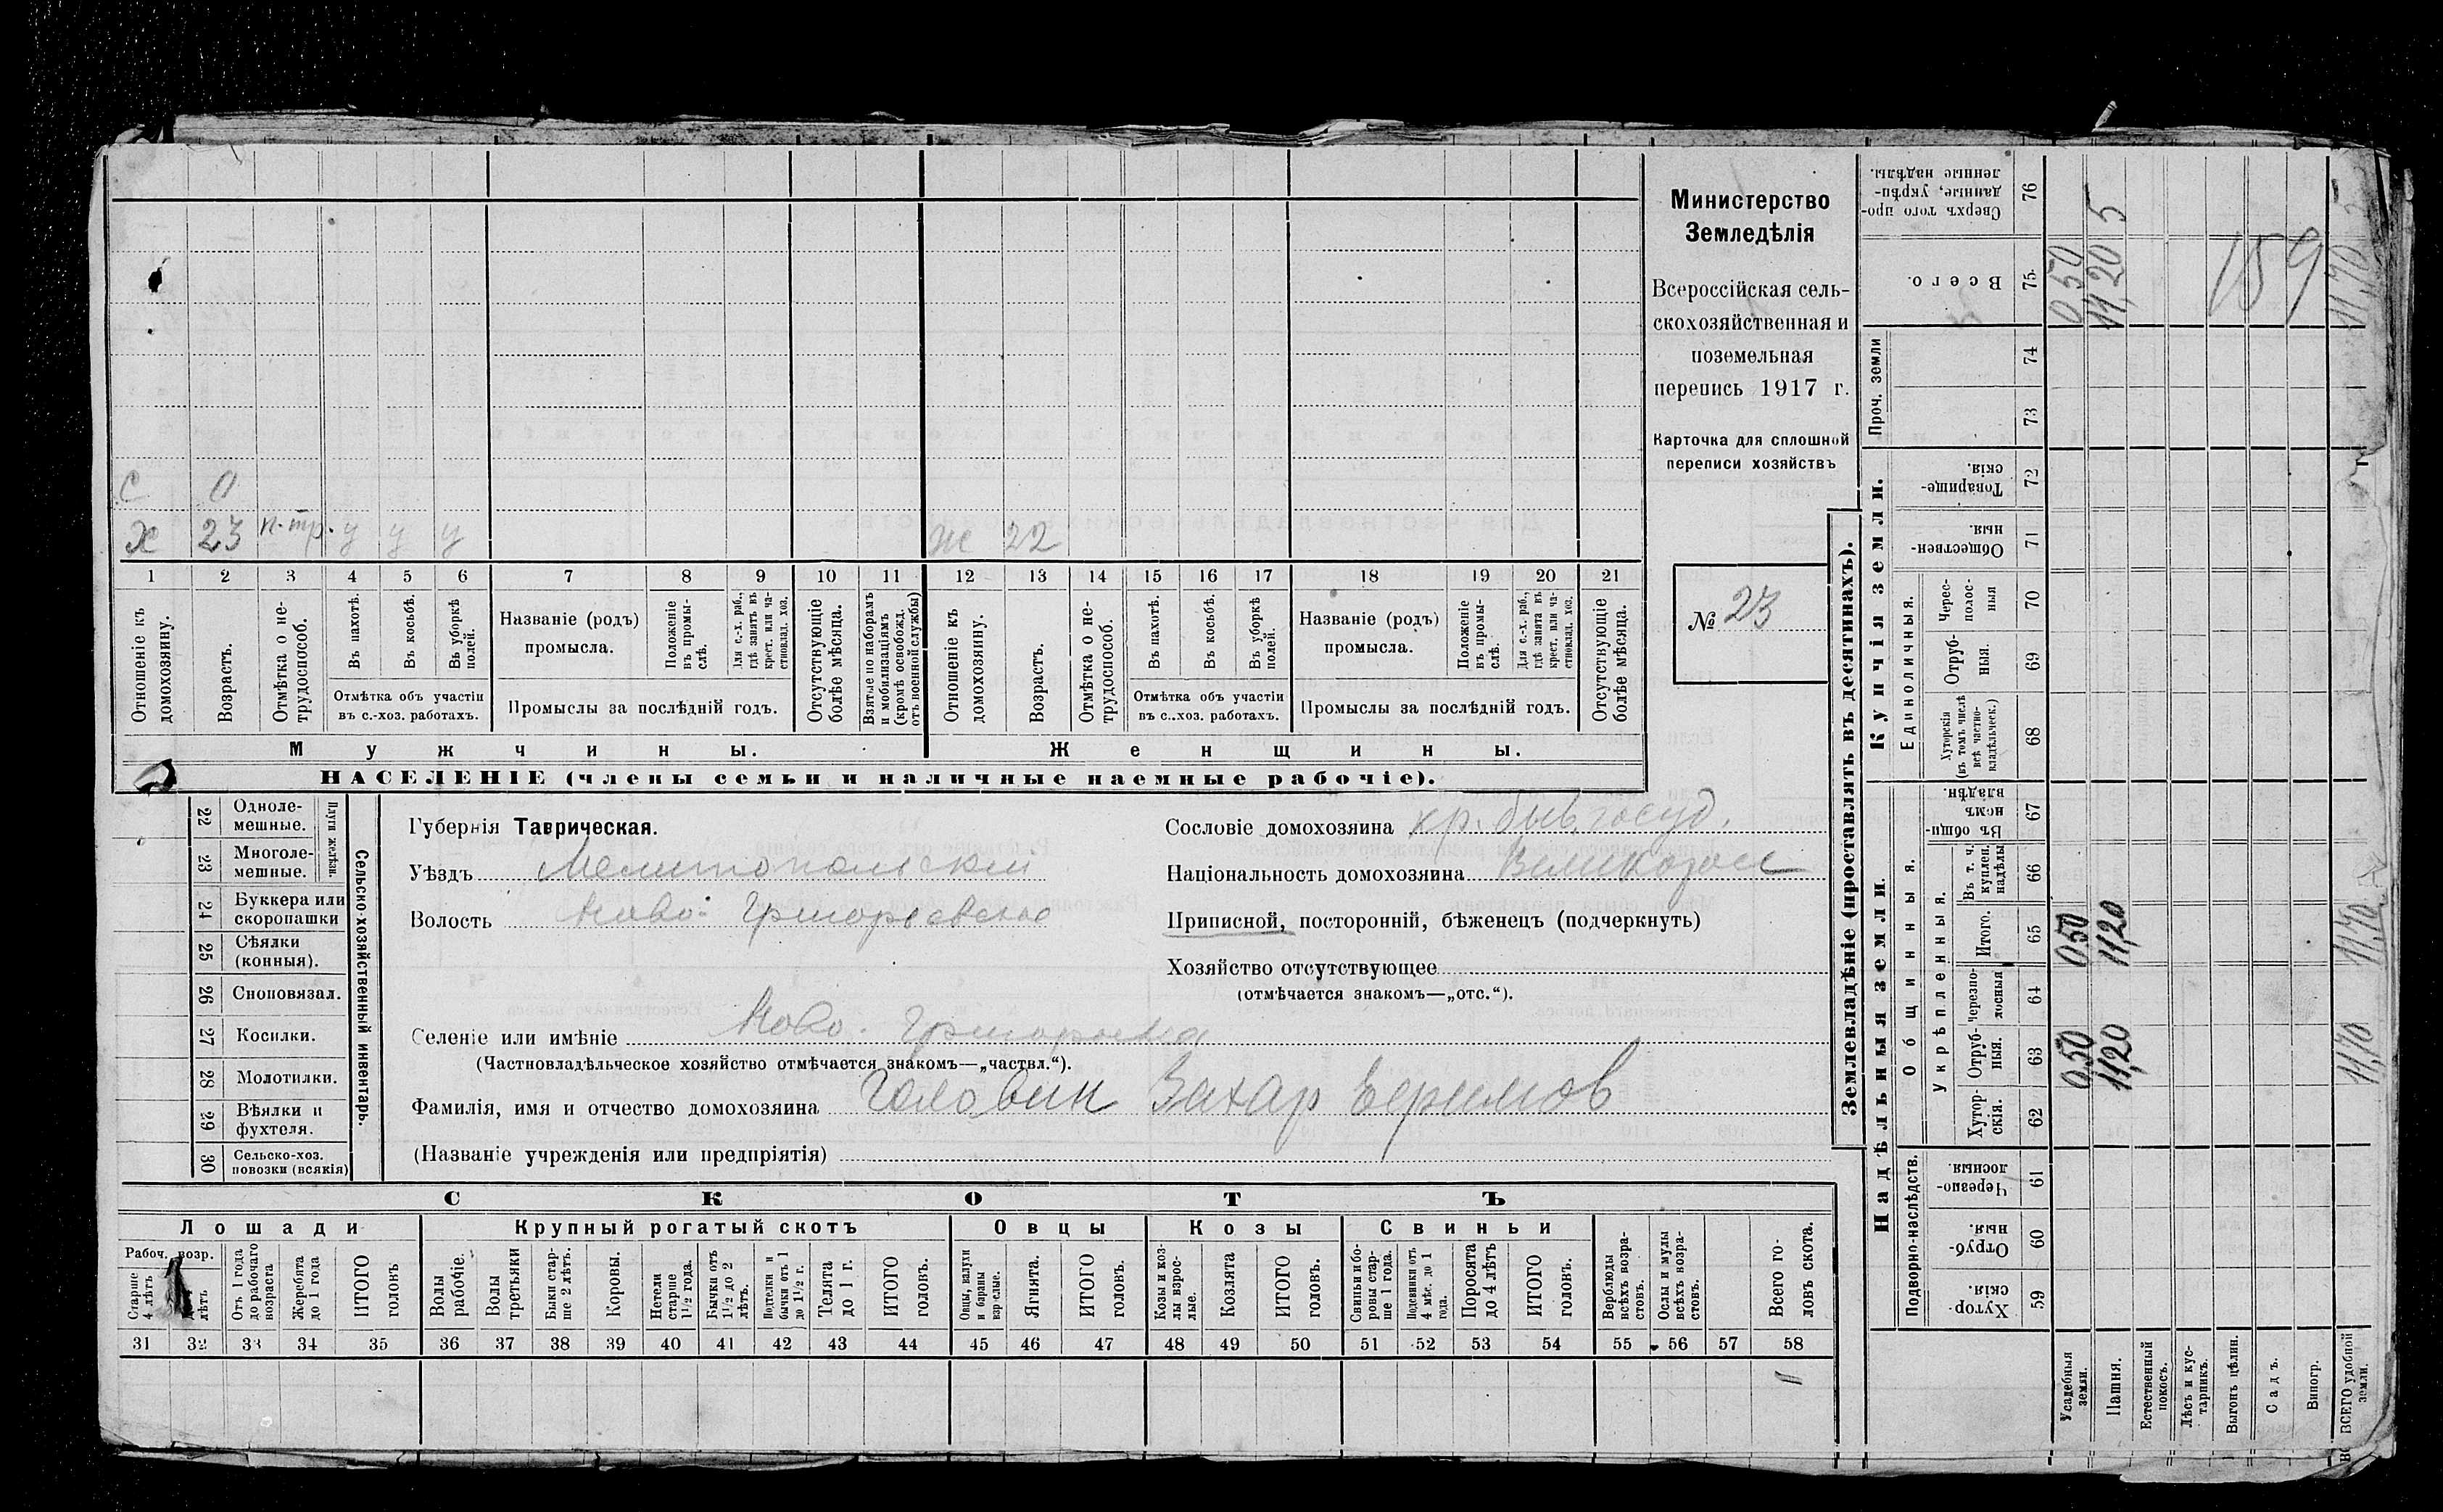 с 0
х 23 п-тр. у у у ж 22
1 2 3 4 5 6 7 8 9 10 11 12 13 14 15 16 17 18 19 20 21
Отношеніе къ домохозяину.
Возрастъ.
Отмѣтка о не-
трудоспособ.
Въ пахотѣ.
Въ косьбѣ.
Въ уборкѣ
полей.
Отмѣтка объ участіи
въ с.-хоз. работахъ.
Названіе (родъ)
промысла.
Положеніе
въ промы-
слѣ.
Для с.-х. раб.,
гдѣ занятъ въ
крест. или ча-
стновлад. хоз.
Промыслы за послѣдній годъ.
Отсутствующіе
болѣе мѣсяца.
Взятые по наборамъ
и мобилизаціямъ
(кромѣ освобожд.
отъ военной службы)
Отношеніе къ
домохозяину.
Возрастъ.
Отмѣтка о не-
трудоспособ.
Въ пахотѣ.
Въ косьбѣ.
Въ уборкѣ
полей.
Отмѣтка объ участіи
въ с..хоз. работахъ.
Названіе (родъ)
промысла.
Положеніе
въ промы-
слѣ.
Для с.-х. раб.,
гдѣ занята въ
крест. или ча-
стновлад. хоз.
Промыслы за послѣдній годъ.
Отсутствующіе
болѣе мѣсяца.
Мужчины.
Женщины.
НАСЕЛЕНІЕ (члены семьи и наличные наемные рабочіе).
Министерство
Земледѣлія
Всероссійская сель-
скохозяйственная и
поземельная
перепись 1917 г.
Карточка для сплошной
переписи хозяйствъ
№ 23
22 Одноле-
мешные.
23 Многоле-
мешные.
Плуги желѣзн.
24 Буккера или
скоропашки
25 Сѣялки
(конныя).
26 Сноповязал.
27 Косилки.
28 Молотилки.
29 Вѣялки и
фухтеля.
30 Сельско-хоз.
повозки (всякія)
Сельско-хозяйственный инвентарь.
Губернія Таврическая.
Уѣздъ Мелитопольскій
Волость Ново-Григорьевская
Сословіе домохозяина кр. быв. госуд.
Національность домохозяина Великоросс
Приписной, посторонній, бѣженецъ (подчеркнуть)
Хозяйство отсутствующее
(отмѣчается знакомъ—„отс.“).
Селеніе или имѣніе Ново-Григорьевка
(Частновладѣльческое хозяйство отмѣчается знакомъ—„частвл.“).
Фамилія, имя и отчество домохозяина Головин Захар
(Названіе учрежденія или предпріятія)
СКОТЪ
Лошади Крупный рогатый скотъ Овцы Козы Свиньи
Рабоч. возр.
Старше
4 лѣтъ
лѣтъ
Отъ 1 года
до рабочаго
возраста
Жеребята
до 1 года
ИТОГО
головъ
Волы
рабочіе.
Волы
третьяки
Быки стар-
ше 2 лѣтъ.
Коровы.
Нетели
старше
1½ года.
Бычки отъ
1½ до 2
лѣтъ.
Подтелки и
бычки отъ 1
до 1½ г.
Телята
до 1 г.
ИТОГО
головъ.
Овцы, валухи
и бараны
взрослые.
Ягнята.
ИТОГО
головъ.
Козы и коз-
лы взрос-
лые.
Козлята
ИТОГО
головъ.
Свиньи и бо-
ровы стар-
ше 1 года.
Подсвинки отъ
4 мѣс. до 1
года.
Поросята
до 4 лѣтъ
ИТОГО
головъ.
Верблюды
всѣхъ возра-
стовъ.
Ослы и мулы
всѣхъ возра-
стовъ.
Всего го-
ловъ скота.
31 32 33 34 35 36 37 38 39 40 41 42 43 44 45 46 47 48 49 50 51 52 53 54 55 56 57 58
Землевладѣніе (проставлять въ десятинахъ).
Купчія земли.
Надѣльныя земли.
Сверхъ того про-
данные, укрѣп-
ленные надѣлы.
76
5
Всего.
75
0,50
11,20
159
11,70
Проч. земли
74
73
Товарище-
скія.
72
Обществен-
ныя.
71
Единоличныя.
Черес-
полос-
ныя
70
Отруб-
ныя.
69
Хуторскія
(въ томъ числѣ
всѣ частно-
владѣльческ.)
68
Общинныя.
Въ общин-
номъ
владѣн.
67
Укрѣпленныя.
Въ т. ч.
куплен.
надѣлы
66
Итого.
65
0,50
11,20
11,70
Черезпо-
лосныя
64
Отруб-
ныя.
63
0,50
11,20
11,70
Хутор-
скія.
62
Подворно-наслѣдств.
Черезпо-
лосныя
61
Отруб-
ныя.
60
Хутор-
скія.
59
Усадебныя
земли.
Пашня.
Естественный
покосъ.
Лѣсъ и кус-
тарникъ.
Выгонъ цѣлин.
Садъ.
Виногр.
ВСЕГО удобной
земли.